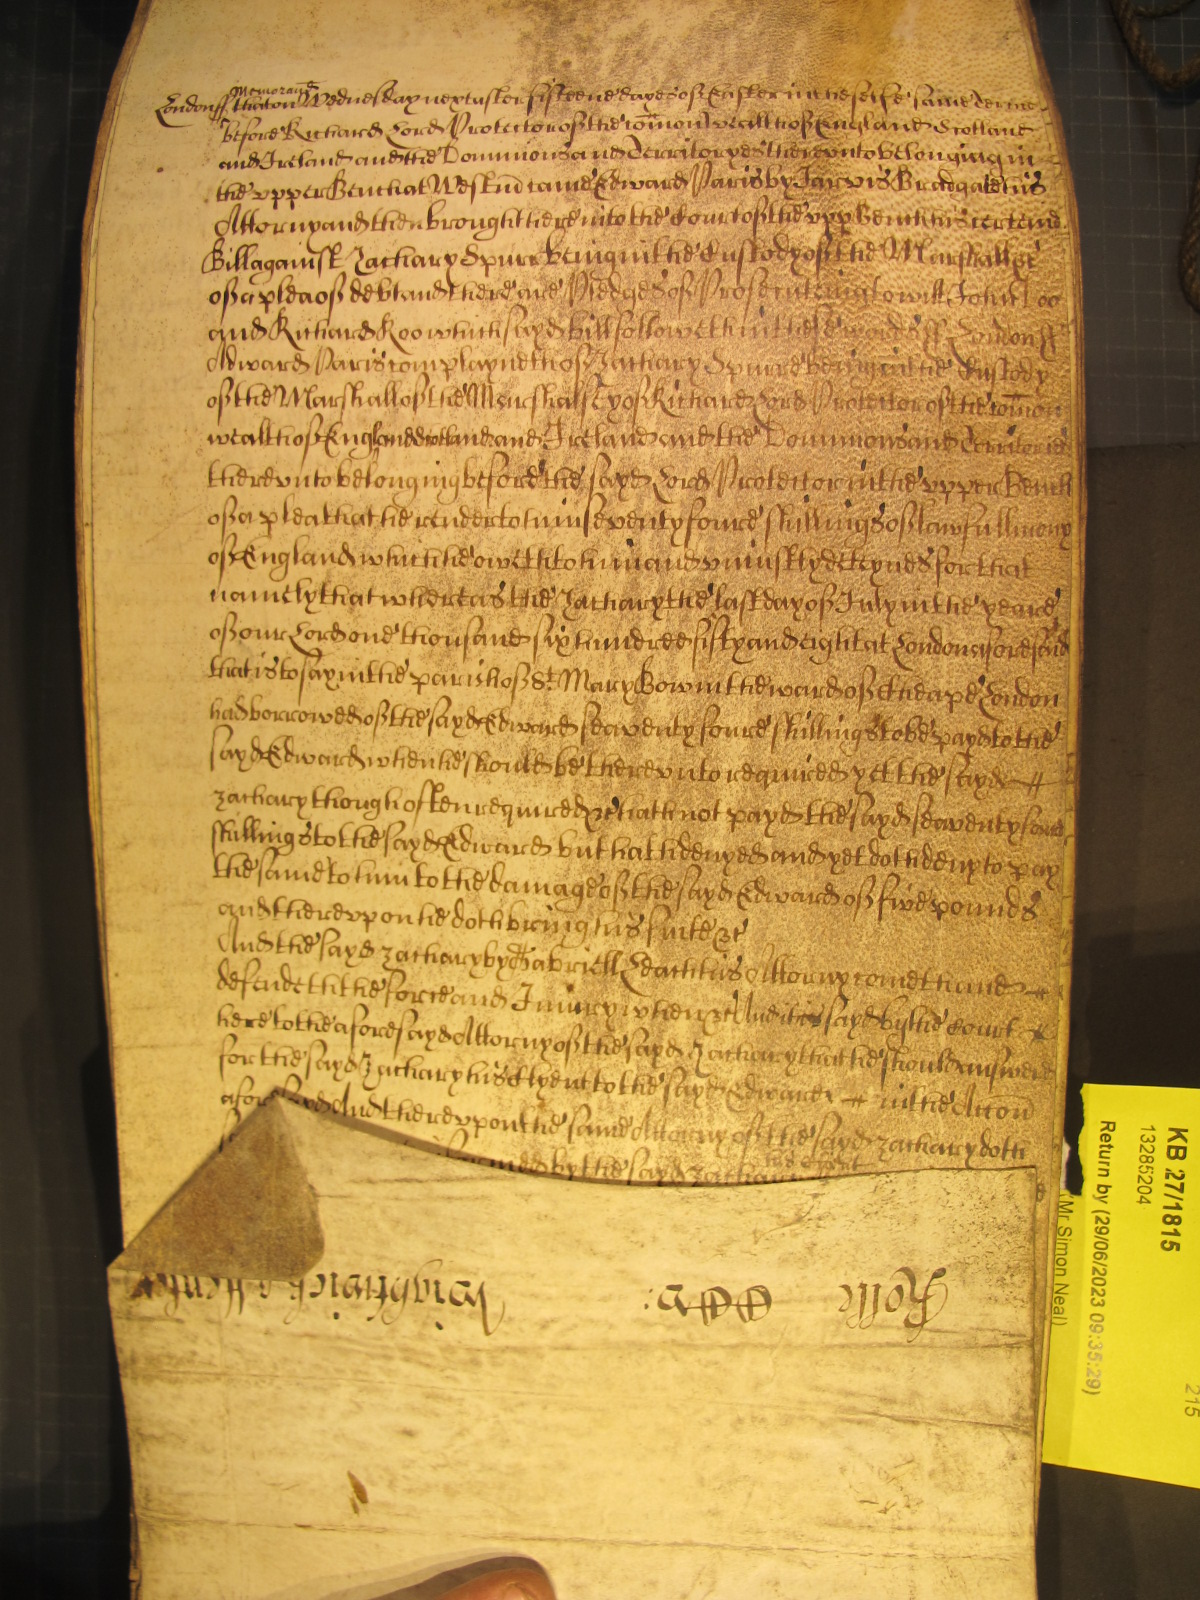 London ss Memorand that on Wednesday next after fifteene dayes of Easter in the selfe same Terme
before Richard Lord Protector of the Comon wealth of England Scotland
and Ireland and the Dominions and Territoryes thereunto belonging in
the upper Bench at Westm came Edward Paris by Jarvis Bradgate his
Attorny and then brought here into the Court of the upp Bench his certeine
Bill against Zachary Spurre being in the Custody of the Marshall &c
of a plea of debt and there are Pledges of Prosecuting to witt John Doo
and Richard Roo which sayd bill followeth in these words ss London ss
Edward Paris complayneth of Zachary Spurre being in the Custody
of the Marshall of the Marshalsey of Richard Lord Protector of the comon
wealth of England Scotland and Ireland and the Dominions and Territories
thereunto belonging before the sayd Lord Protector in the upper Bench
of a plea that he render to him seventy foure shillings of lawfull mony
of England which he oweth to him and uniustly deteynes for that
namely that whereas the Zachary the last day of July in the yeare
of our Lord one thousand six hundred fifty and eight at London aforesaid
that is to say in the parish of St Mary Bow in the ward of Cheape London
had borrowed of the sayd Edward seaventy foure shillings to be payd to the
sayd Edward when he should be thereunto required yet the sayd
Zachary though often required &c hath not payd the sayd seaventy foure
shillings to the sayd Edward but hath denyed and yet doth deny to pay
the same to him to the damage of the sayd Edward of five pounds
and thereupon he doth bring his suite &c
And the sayd Zachary by Gabriell Leach his Attorny cometh and
defendeth the force and Iniury when &c And it is sayd by the Court
here to the aforesayd Attorny of the sayd Zachary that he should answere
for the sayd Zachary his Clyent to the sayd Edward in the Accon
aforesayd And thereupon the same Attorny of the sayd Zachary doth
informed by the sayd Zachary
his Clyent
Rolle
KB 27/1815
13285204
Return by (29/06/2023 09:35:29)
(Mr Simon Neal)
215